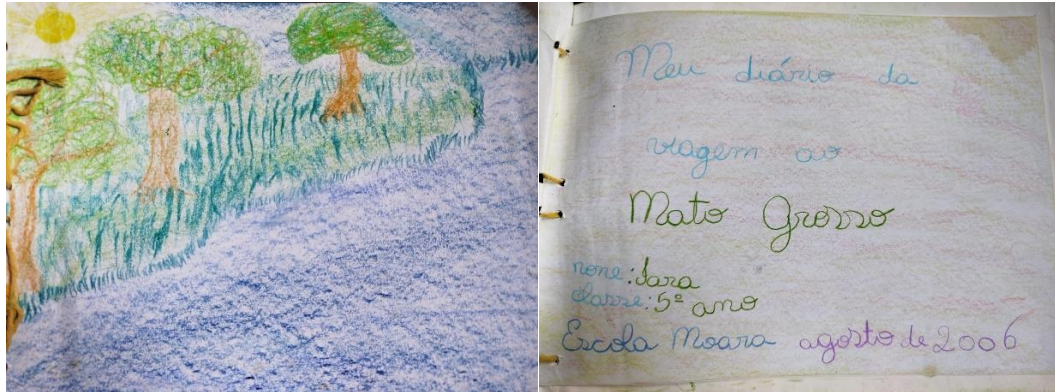 Meu diário da
viagem ao
Mato Grosso
nome: Sara
classe: 5º ano
Escola Moara agosto de 2006